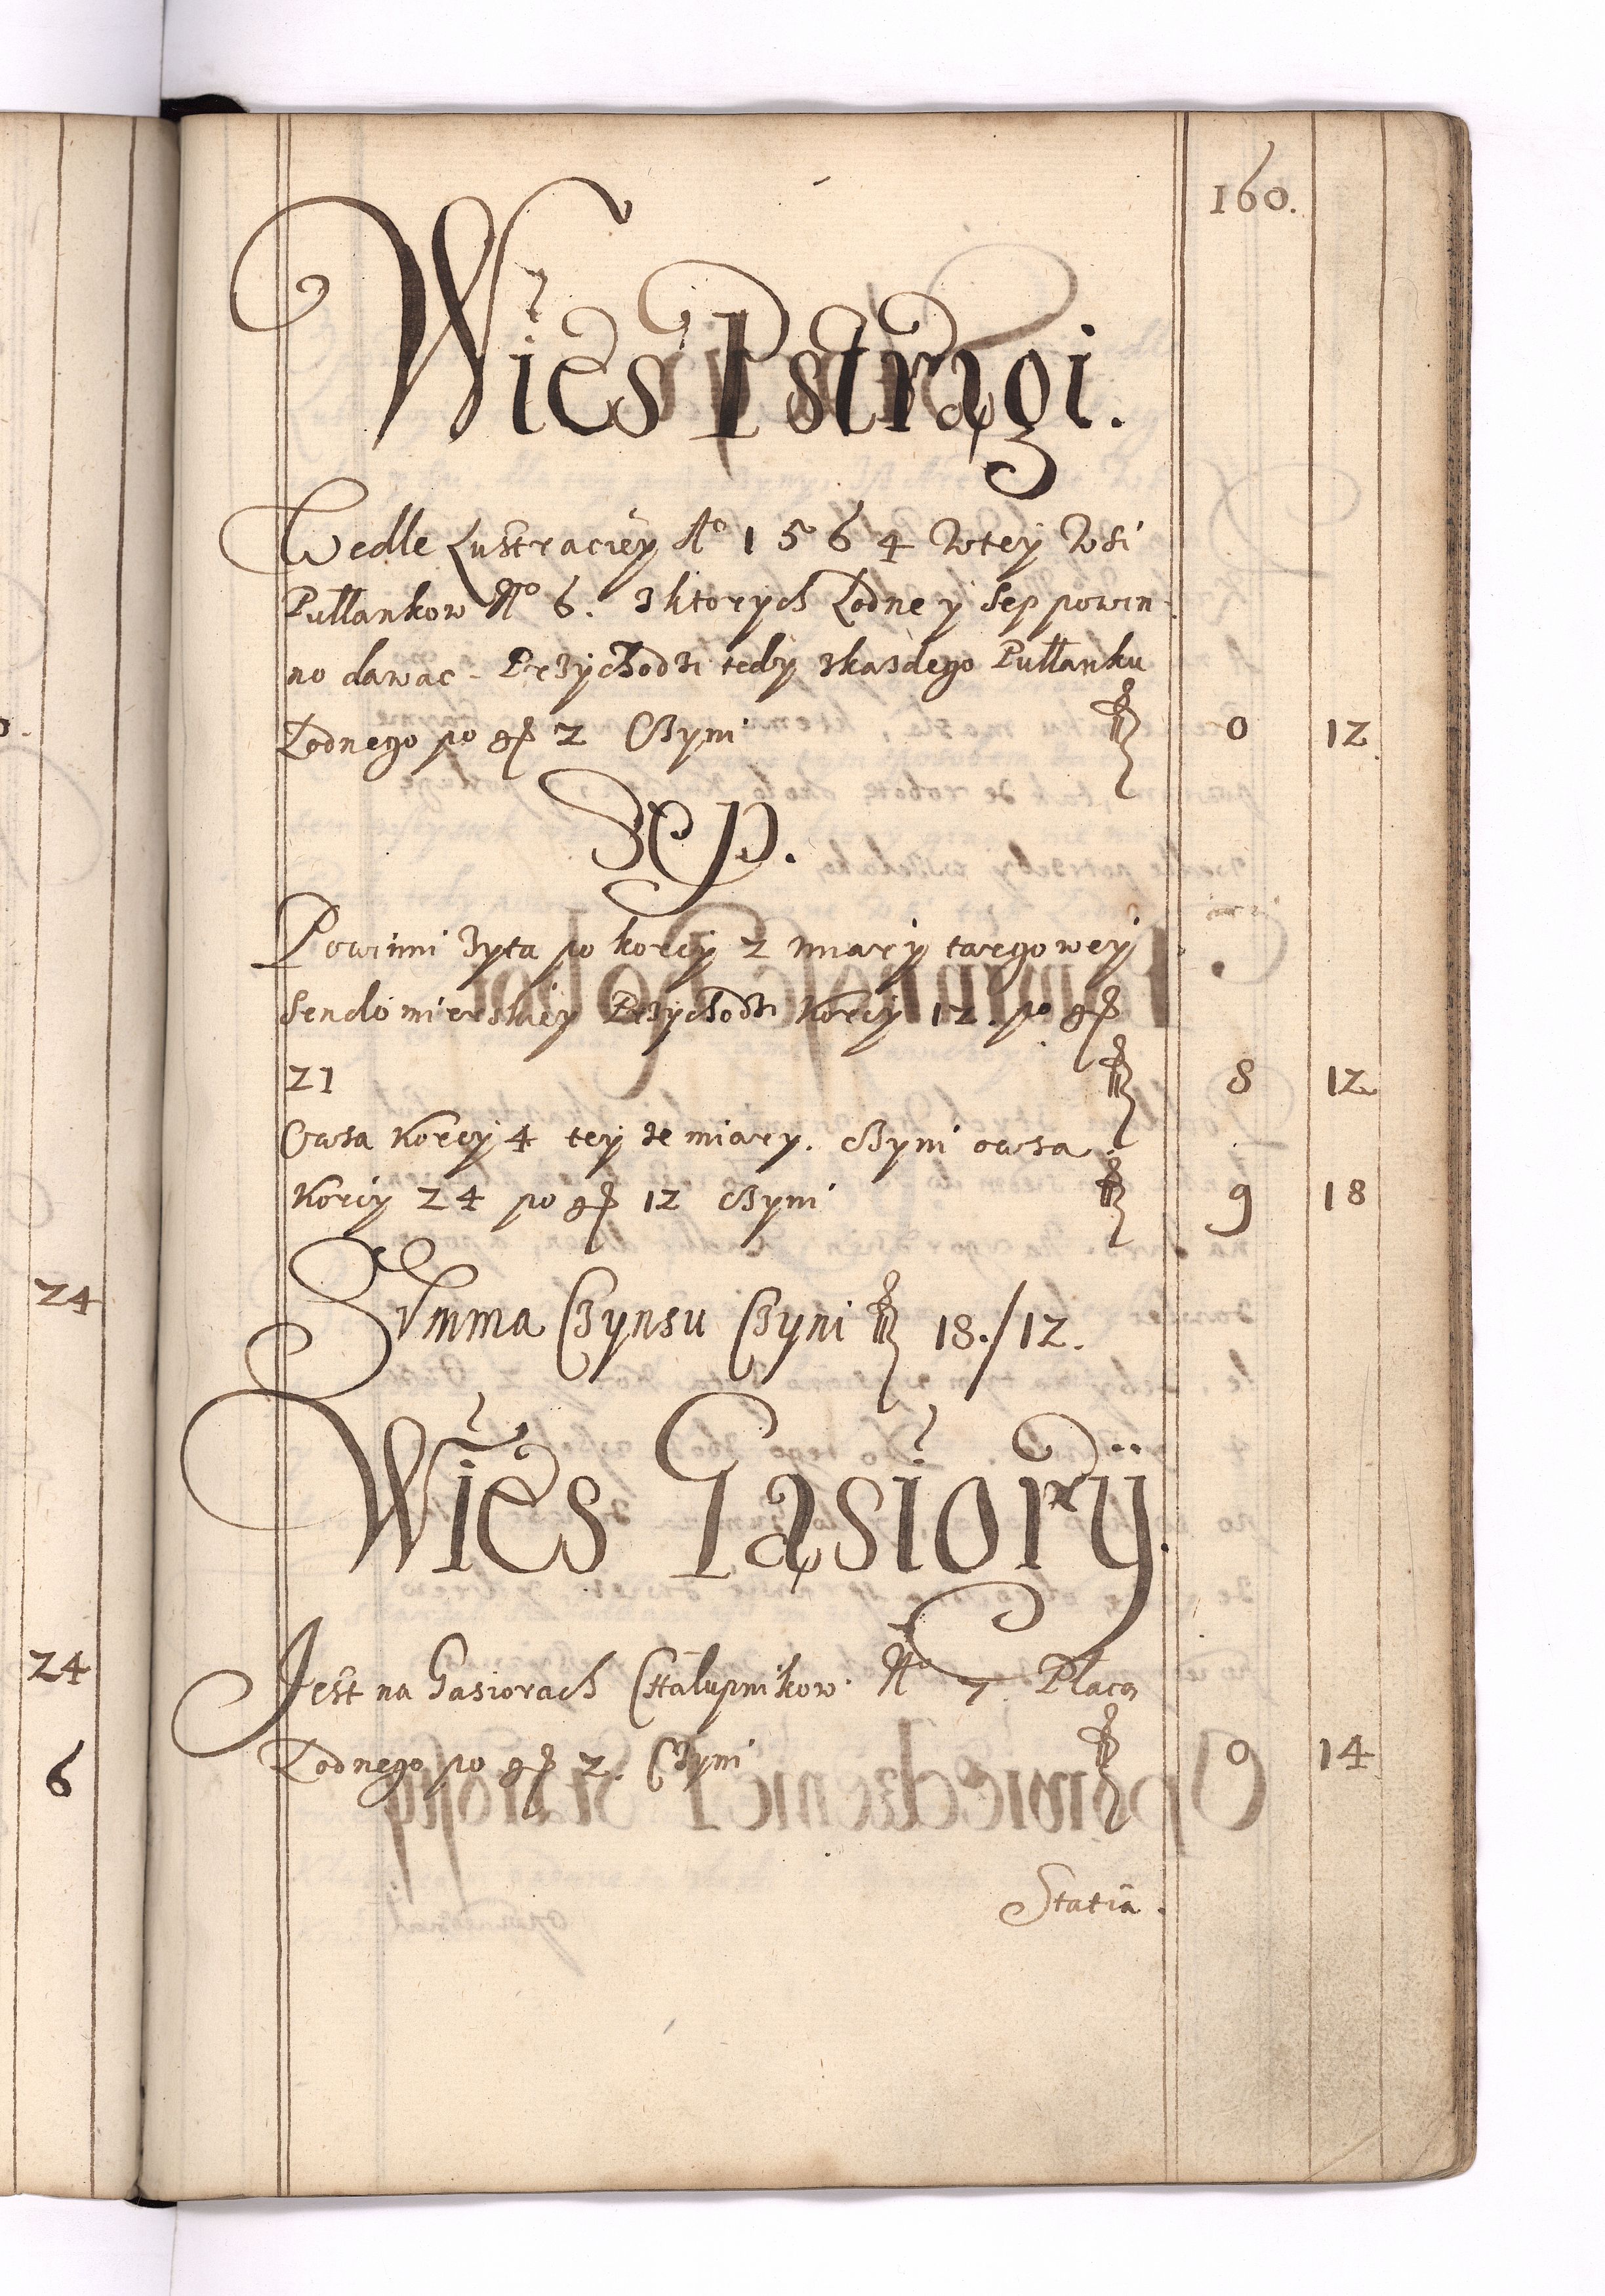 160.
Wieś Pstrągi.
Wedle Lustraciey Aº 1564 wtey wsi
Pułłankow Nº 6. z ktorych Lodne y Sep powin
no dawac. Przychodzi tedy zkazdego Pułłanku
Lodnego po gr 2 Czyni fl 0 12.
Sep.
Powinni zyta po korcy 2 miary targowey
Sendomierskiey Przychodzi korcy 12. po gr
21 fl 8 12
Owsa korcy 4 tey ze miary. Czyni owsa
korcy 24 po gr 12 Czyni fl 9 18
Summa Czynsu Czyni fl 18./12.
Wieś Gąsiory.
Jest na Gasiorach Chałupnikow Nº 7. Płacą
Lodnego po gr 2. Czyni fl 0 14
Statia.
24
24
6